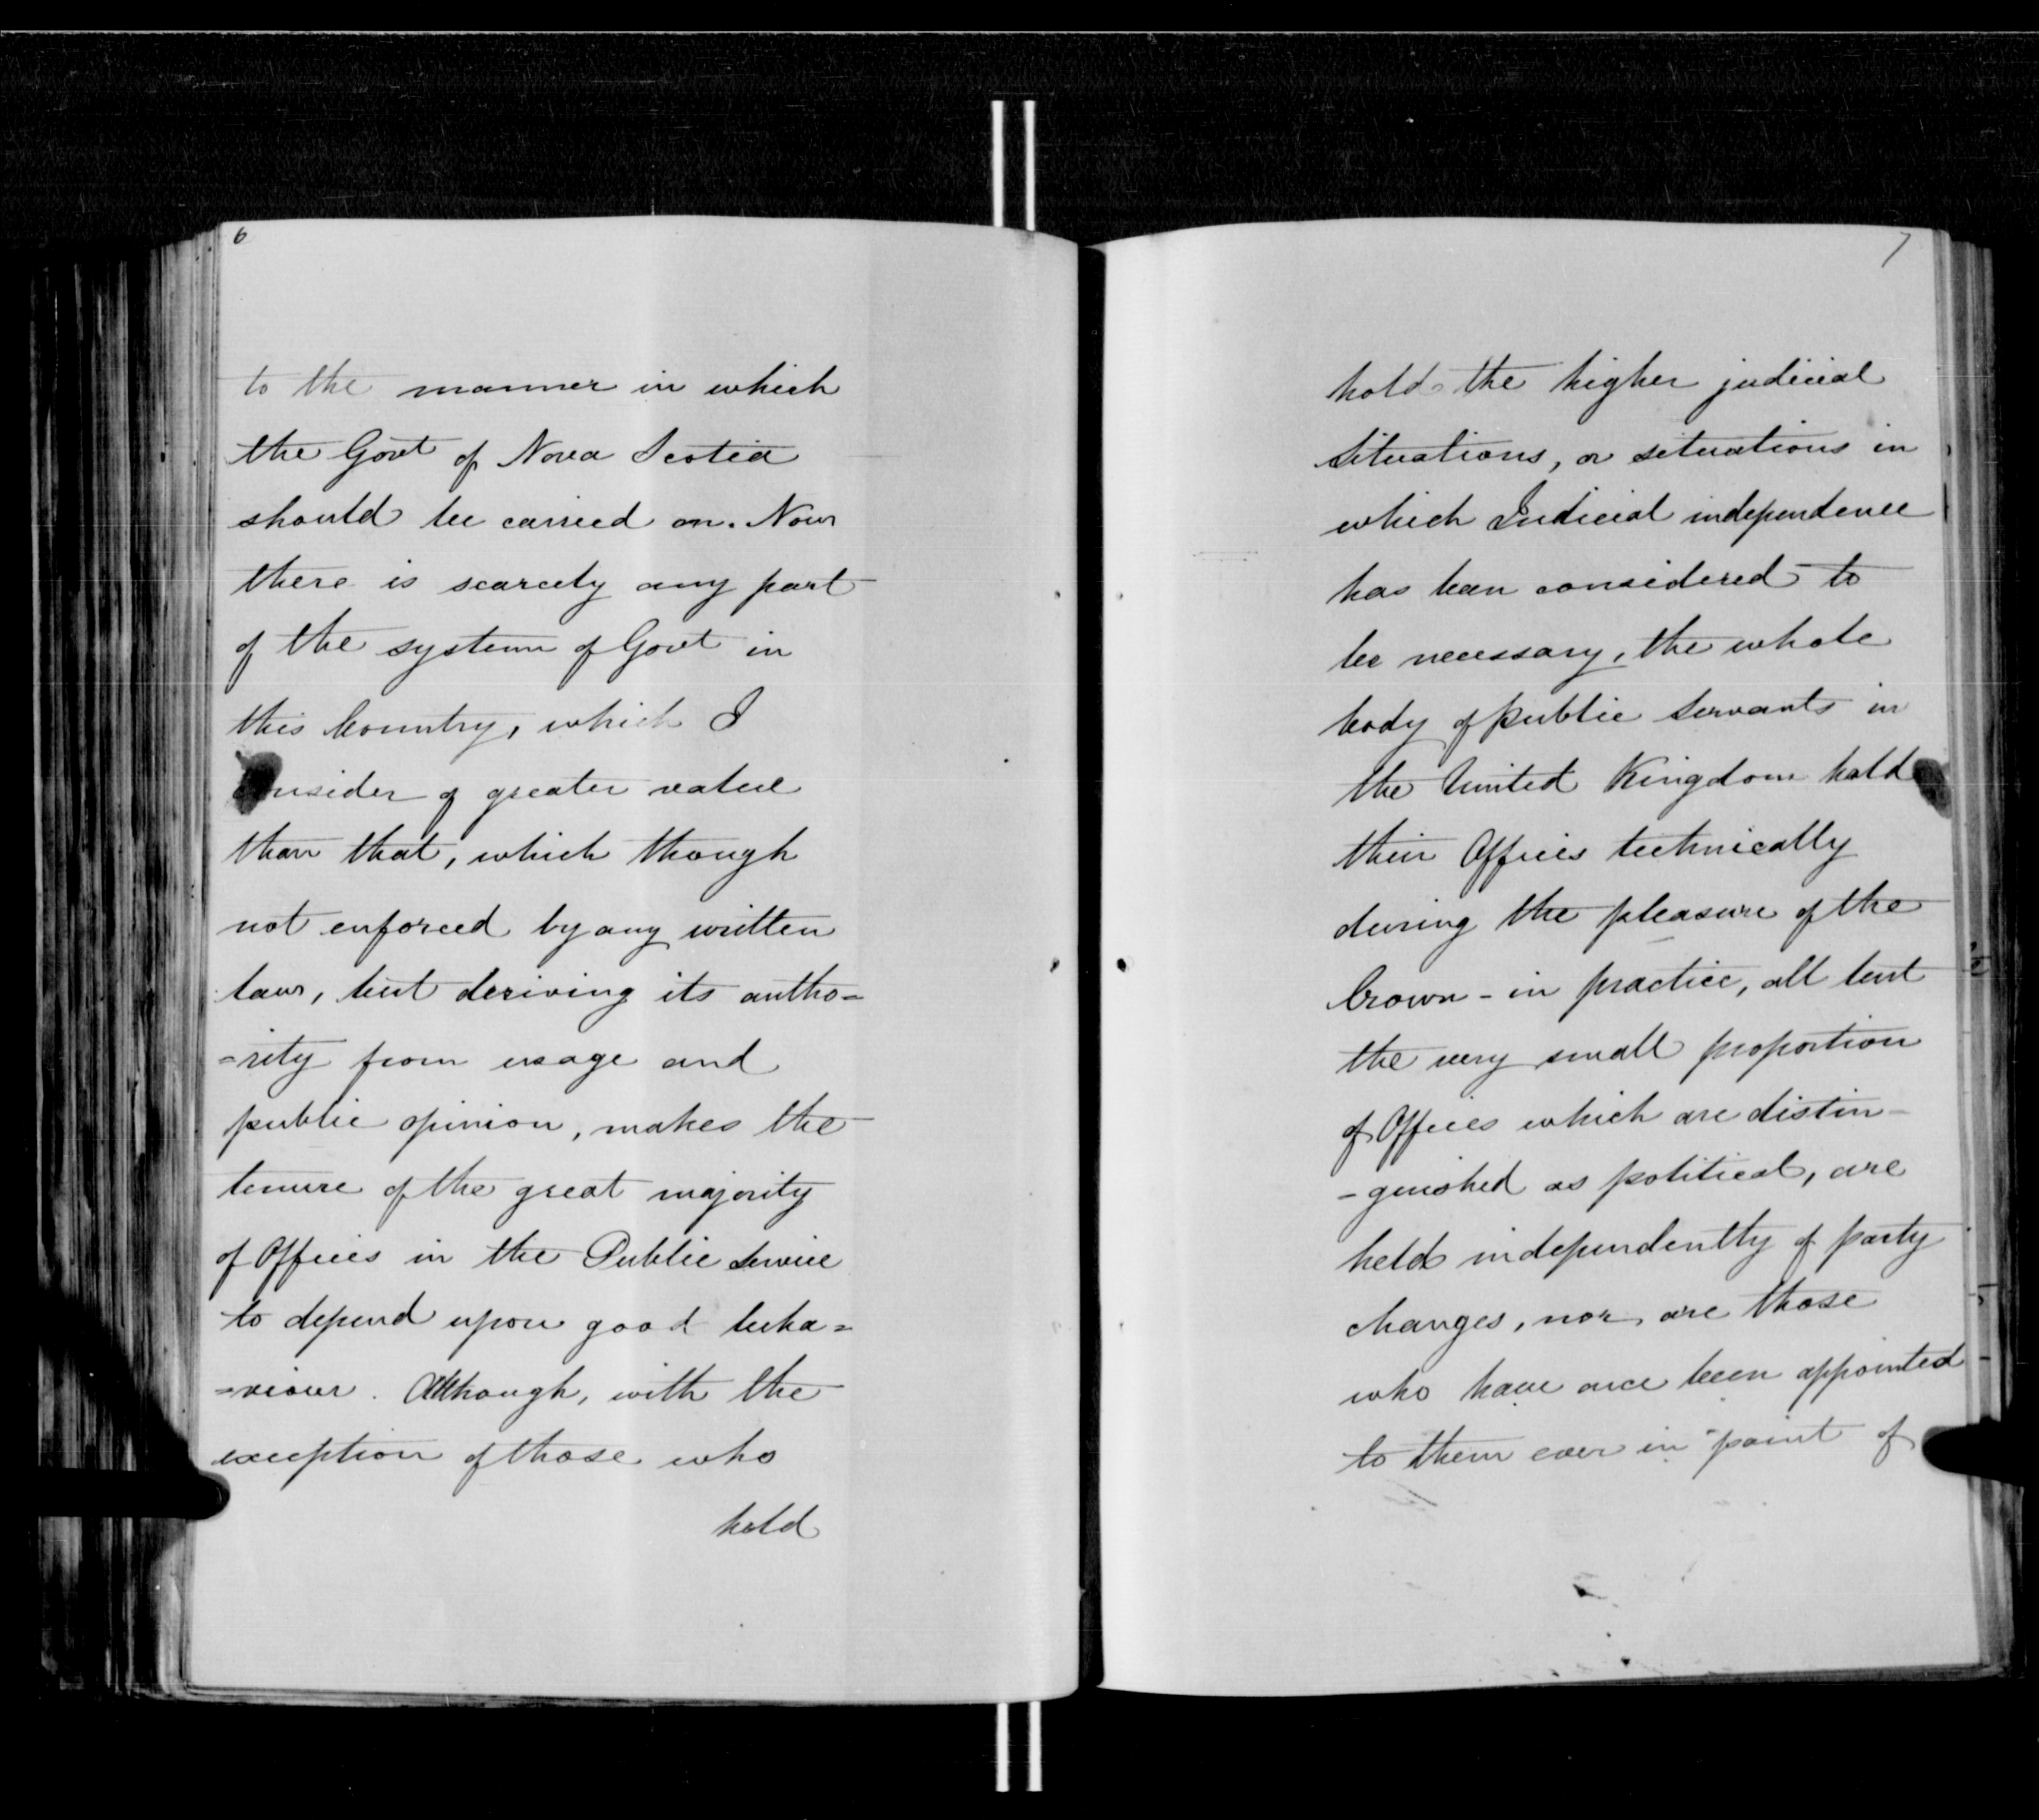 6
to the manner in which
the Govt of Nova Scotia
should be carried on. Now
there is scarcely any part
of the system of Govt in
this Country, which I
consider of greater value
than that, which though
not enforced by any written
law, but deriving its autho=
=rity from usage and
public opinion, makes the
tenure of the great majority
of Offices in the Public Service
to depend upon good beha=
=viour. Although, with the
exception of those who
hold
7
hold the higher judicial
situations, or situations in
which Judicial independence
has been considered to
be necessary, the whole
body of public servants in
the United Kingdom hold
their Offices technically
during the pleasure of the
Crown - in practice, all but
the very small proportion
of Offices which are distin-
-guished as political, are
held independently of party
changes, nor are those
who have once been appointed
to them ever in point of